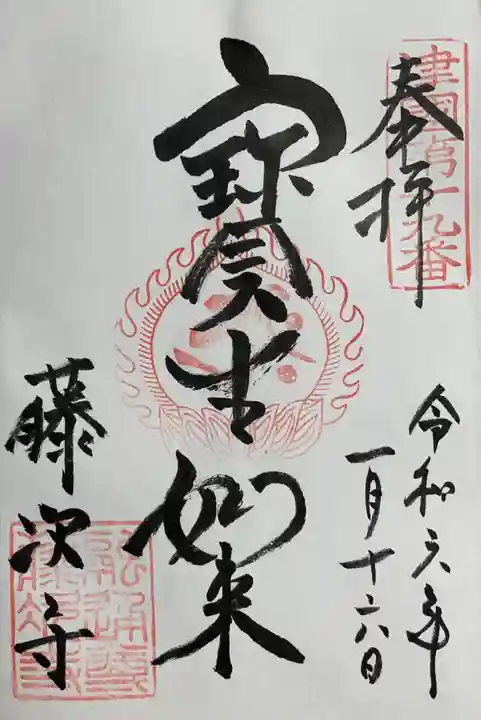 津國第十九番
奉拝
令和六年
一月十六日
寳生如来
藤次寺